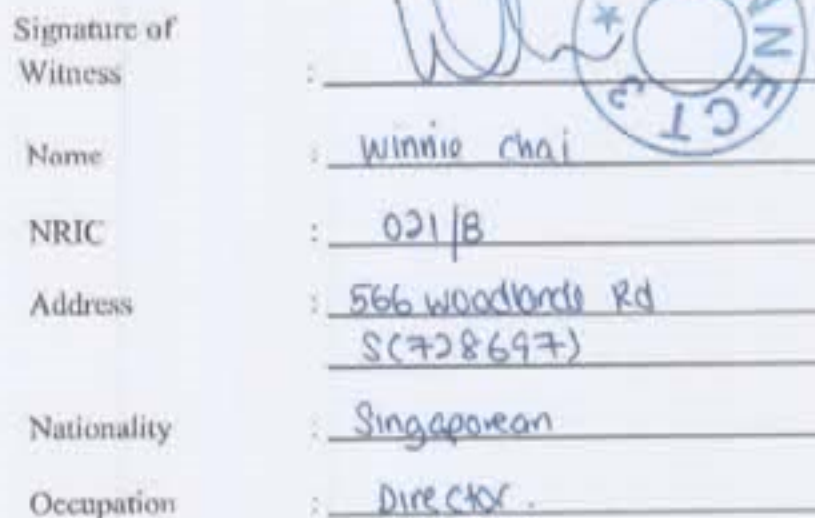 Signature of
Witness :
NNECT 3 *
Name : Winnie Chai
NRIC : 021/B
Address : 566 Woodlands Rd
S(728697)
Nationality : Singaporean
Occupation : Director.